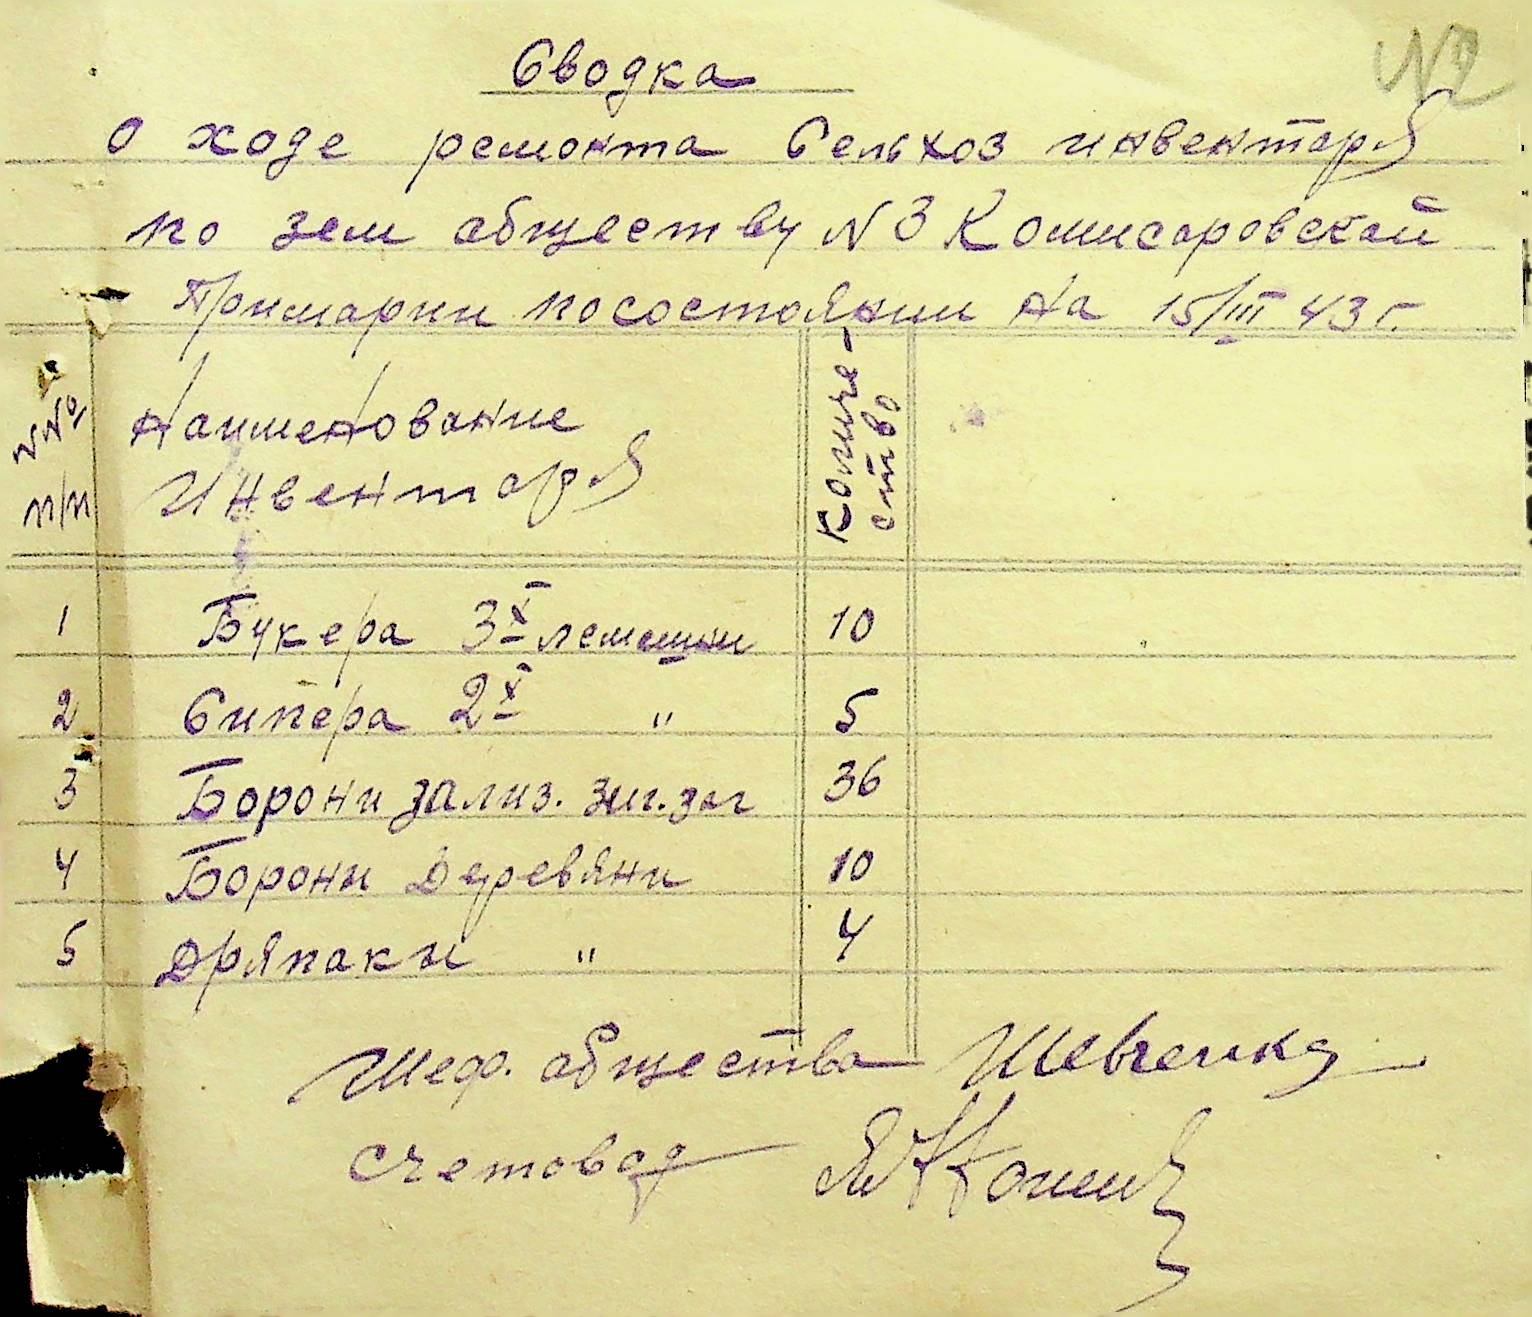 №2
Сводка
о ходе ремонта Сельхоз инвентаря
по зем обществу N 3 Комисаровской
Примарии по состоянии на 15/III 43 г.
№№ п/п
Наименование
Инвентаря
Количе-
ство
1 Букера 3х лемешни 10
2 Сипера 2х " 5
3 Борони зализ. зиг.заг 36
4 Борони Деревяни 10
5 Дряпаки " 4
Шеф. общества Шевченко
Счетовод